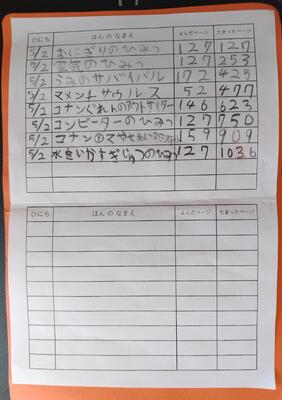 ひにち ほんのなまえ よんだページ たまったページ
5/2 おにぎりのひみつ 127 127
5/2 空気のひみつ 127 253
5/2 うみのサバイバル 172 425
5/2 マメンチサウルス 52 477
5/2 コナンぐれんのアウトサイダー 146 623
5/2 コンピーターのひみつ 127 750
5/2 コナン 159 909
5/2 水をいかすぎじゅつのひみつ 127 1036
ひにち ほんのなまえ よんだページ たまったページ